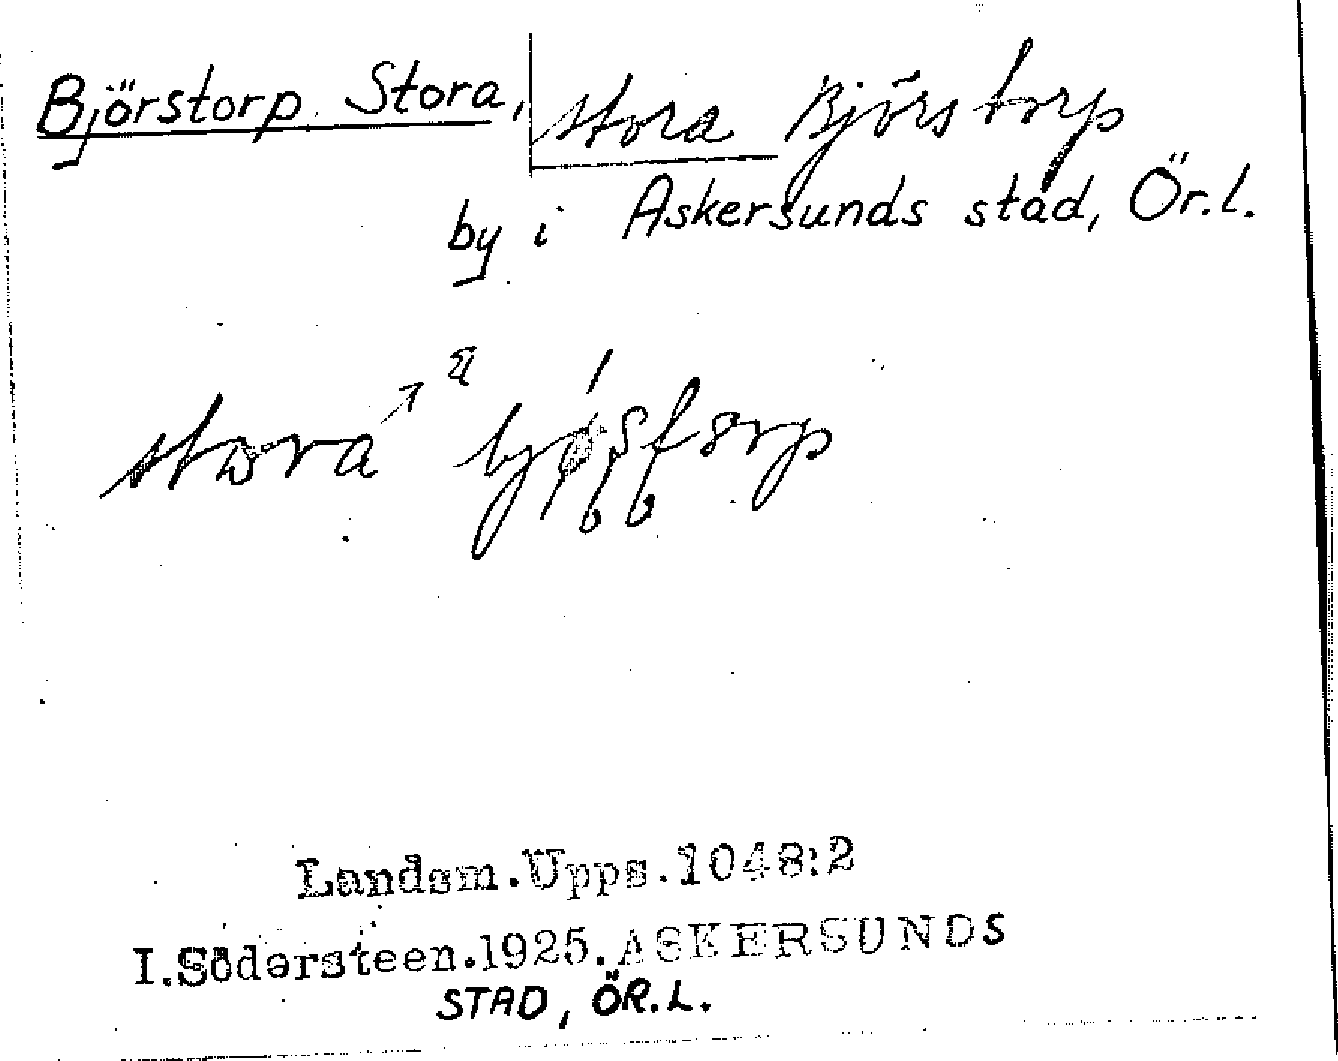 Björstorp, Stora, Stora Björstorp
by i Askersunds stad, Ör.l.
stora
Landsm.Upps.1048:2
I.Södersteen.1925.ASKERSUNDS
STAD, ÖR.L.